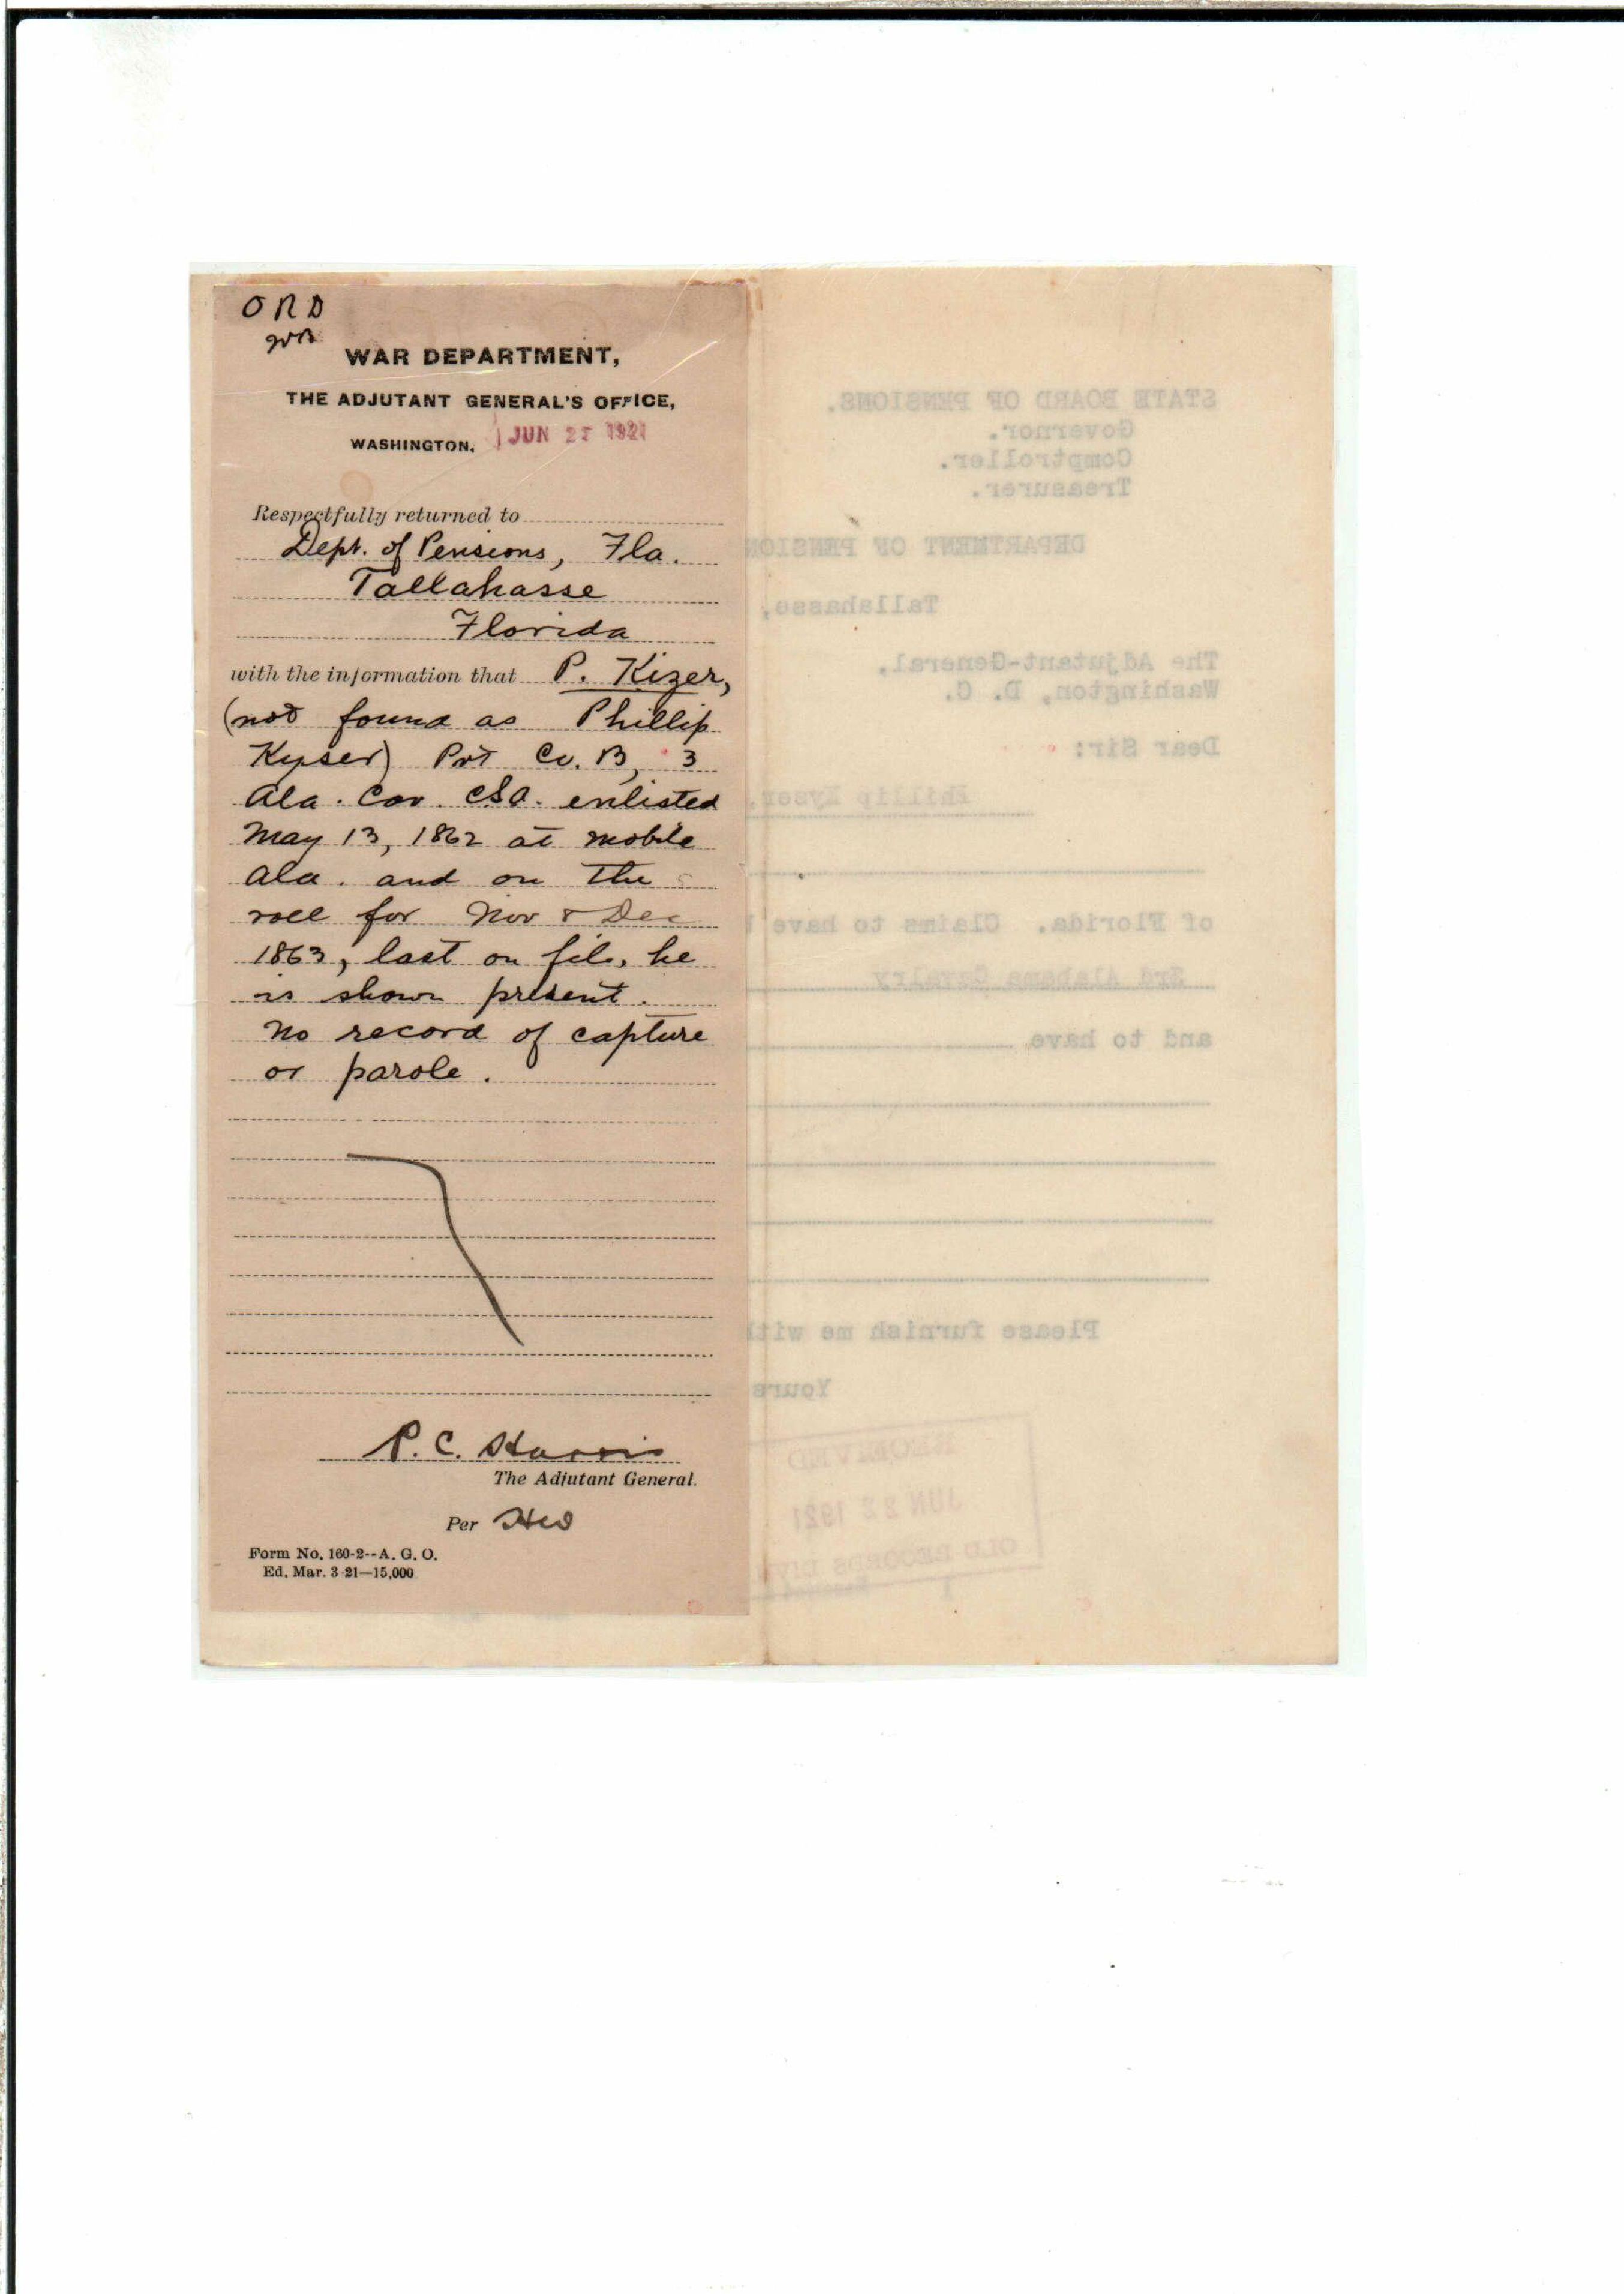 O R D
WAR DEPARTMENT,
THE ADJUTANT GENERAL'S OFFICE,
WASHINGTON, JUN 1921
Respectfully returned to
Dept. of Pensions, Fla.
Tallahasse
Florida
with the information that P. Kizer,
(not found as Phillip
Kyser) Pvt Co. B, 3
Ala. Cav. CSA. enlisted
May 13, 1862 at Mobile
Ala. and on the
roll for Nov & Dec
1863, last on file, he
is shown present.
No record of capture
or parole.
P. C. Harris
The Adjutant General.
Per
Form No. 160-2--A. G. O.
Ed. Mar. 3-21—15,000
STATE BOARD OF PENSIONS.
Governor.
Comptroller.
Treasurer.
DEPARTMENT OF PENSION
Tallahasse,
The Adjutant-General,
Washington, D. C.
Dear Sir:
Phillip Kyser
of Florida. Claims to have
3rd Alabama Cavalry
and to have
Please furnish me with
Yours
RECEIVED
JUN 22 1921
OLD RECORDS DIV